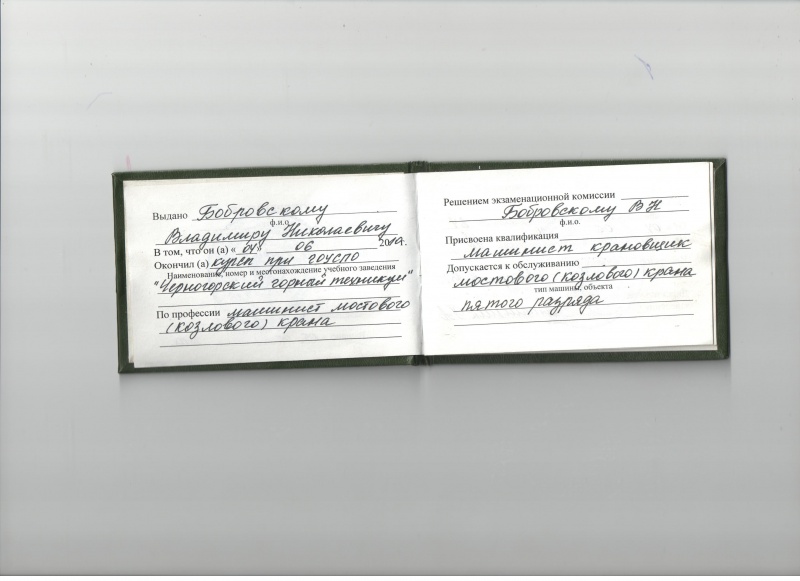 Выдано Бобровскому
ф.и.о.
Владимиру Николаевичу
В том, что он (а) « 04» 06 2010г.
Окончил (а) курсы при ГОУСПО
Наименование, номер и местонахождение учебного заведения
"Черногорский горный техникум"
По профессии машинист мостового
(козлового) крана
Решением экзаменационной комиссии
Бобровскому В Н
ф.и.о.
Присвоена квалификация
машинист крановщик
Допускается к обслуживанию
мостового (козлового) крана
тип машины, объекта
пятого разряда